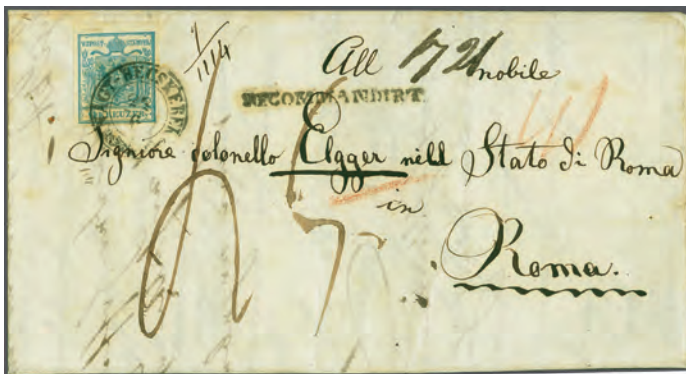 1/1114
All 1721 nobile
RECOMMANDIRT.
Signiore colonello Elgger nell Stato di Roma
in
Roma.